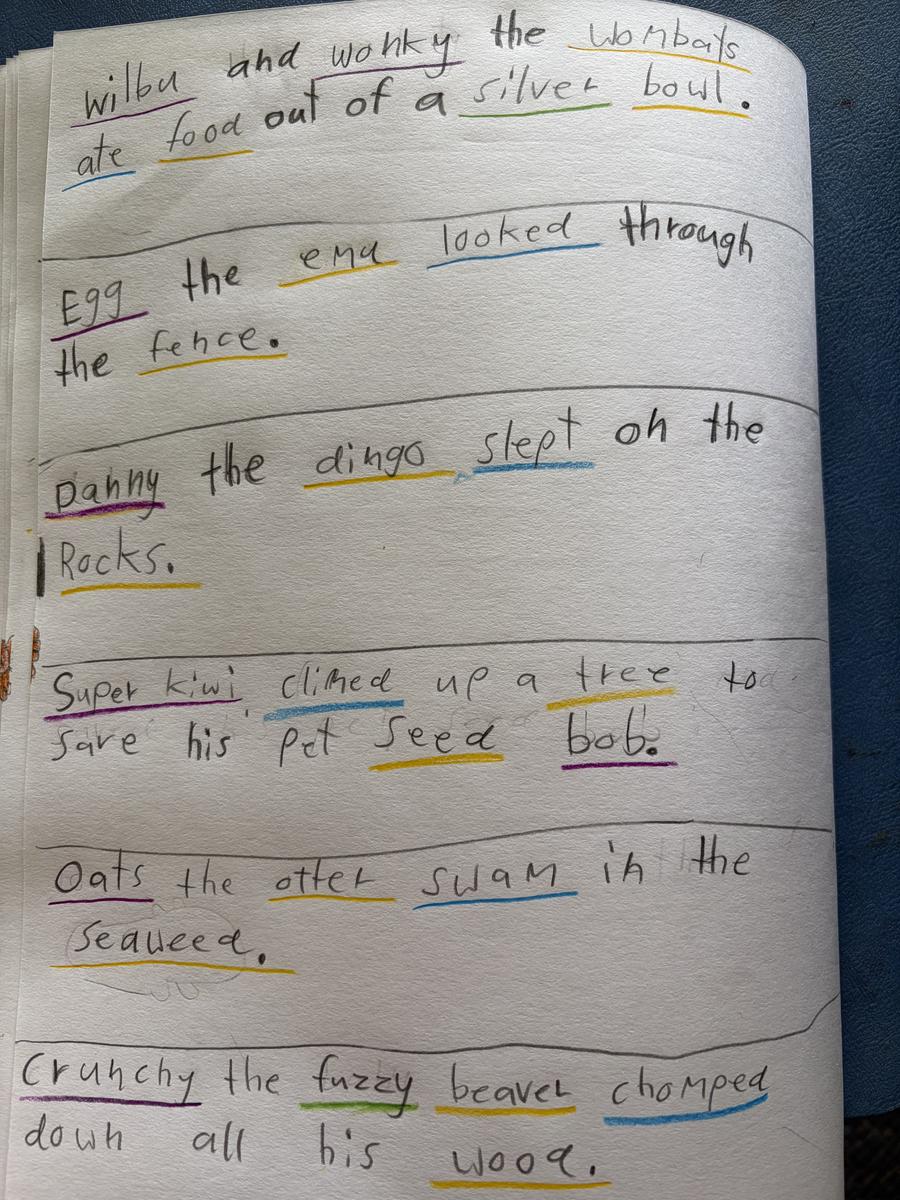 wilbu and wonky the wombats
ate food out of a silver bowl.
Egg the emu looked through
the fence.
Danny the dingo slept on the
Rocks.
Super kiwi climed up a tree to
save his pet seed bob.
Oats the otter swam in the
seaweed.
Crunchy the fuzzy beaver chomped
down all his wood.